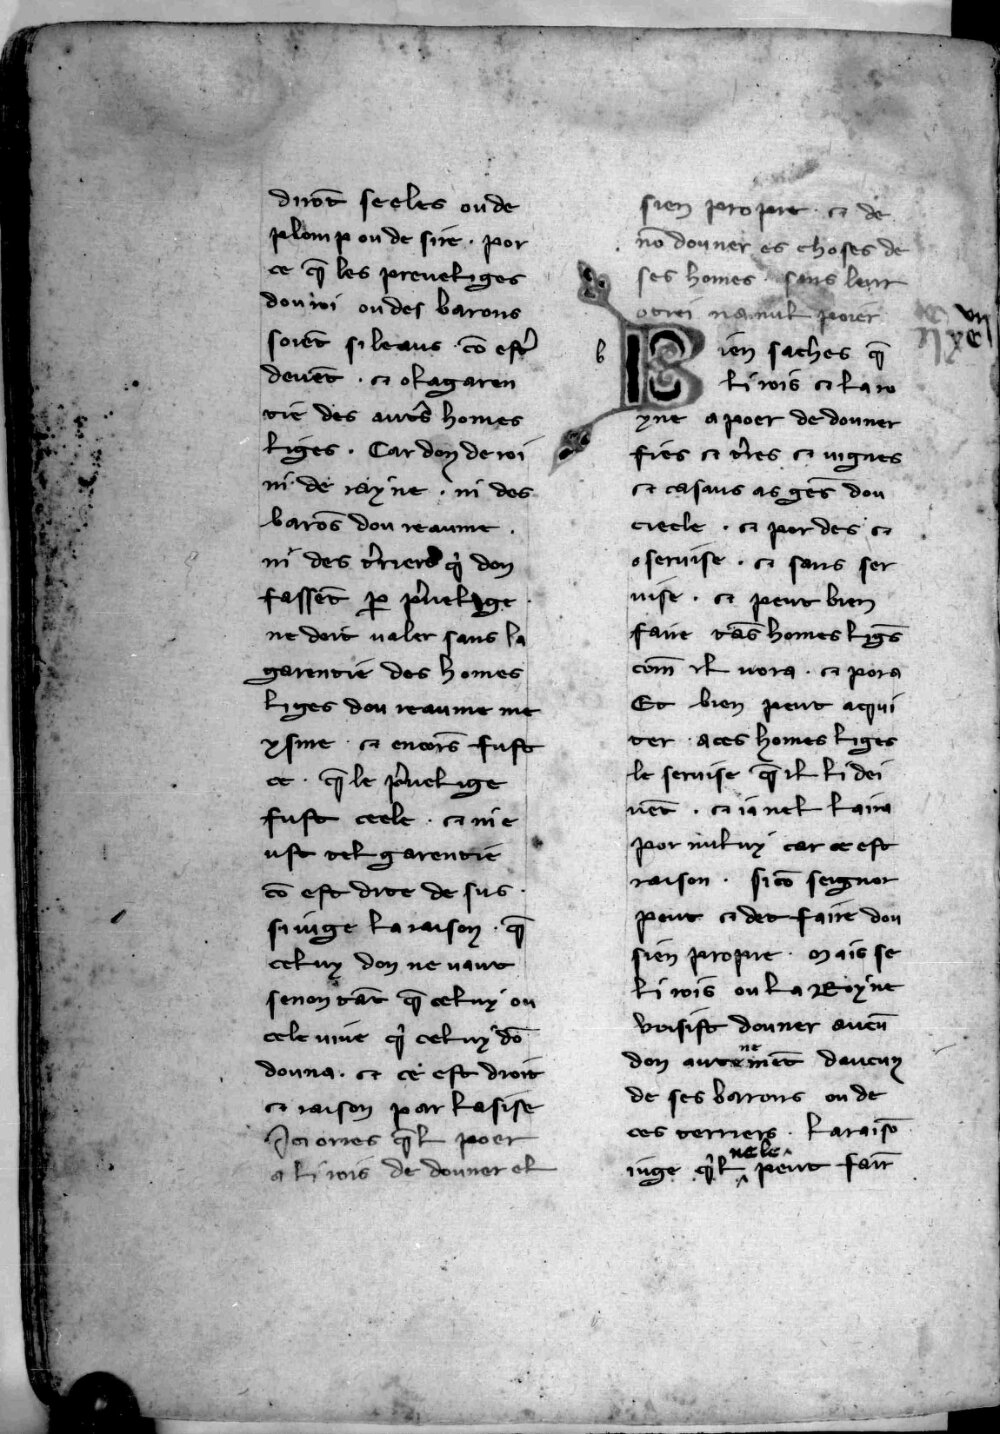 diroẽt seeles ou de
plomp ou de sire · por
ce q̃ les preueliges
dou roi ou des barons
soiẽt si leaus · cõ estr̃
deuẽt · ⁊ o la garen
tie des autr̃s homes
liges · Car don de roi
ni de rayne · ni des
barõs dou reaume ·
ni des t̃riers q̃ don
fassẽt ꝑ p̃uelige ·
ne doit ualer sans la
garentie des homes
liges dou reaume me
ysme · ⁊ encors̃ fust
ce · q̃ le p̃uelige
fust ceele · ⁊ ni e
ust tel garentie
cõ est dite de sus ·
si iuge la raison · q̃
celuy don ne uaut
senon tãt q̃ celuy ou
cele uiue q̃ celuy dõ
donna · ⁊ ce est droit
⁊ raison par lasise
Ici ores q̃l poer
a li rois de douner el
sien propre · ⁊ de
nõ douner es choses de
ses homes · sans leur
otroi
b
Bien saches q̃
li rois ⁊ la ro
yne a poer de douner
fies ⁊ t̃res ⁊ uignes
⁊ casaus as gẽs dou
ciecle · ⁊ por des ⁊
o seruise · ⁊ sans ser
uise · ⁊ peut bien
faire tãs homes ligẽs
com̃ il uora · ⁊ pora
Et bien peut aqui
ter · a ces homes liges
le seruise q̃ il li dei
uẽt · ⁊ ia nel laira
por nuluy car ce est
raison · si cõ seignor
peut ⁊ det faire dou
sien propre · Mais se
li rois ou la Royne
vosist douner aucũ
don autrement daucun
de ses barons ou de
ces terriers · la raisõ
iuge q̃l nele peut fair̃